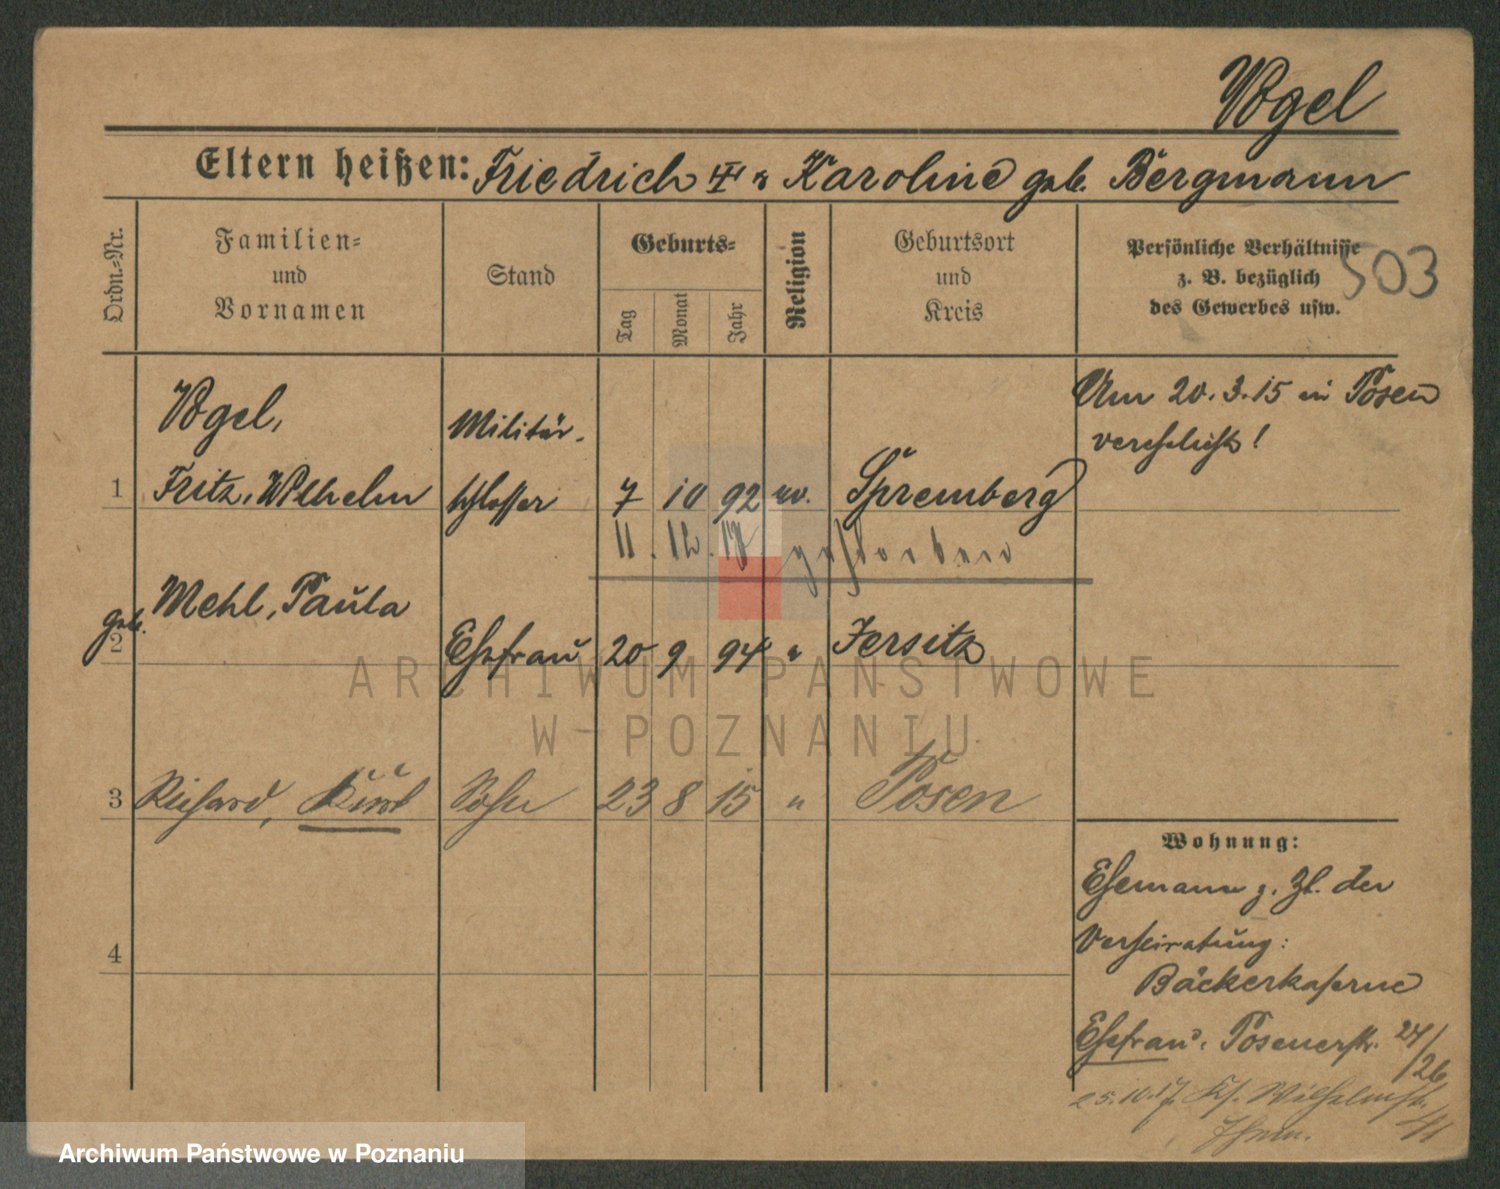 Vogel
Eltern heißen: Friedrich & Karoline geb. Bergmann
Ordn.-Nr.
Familien-
und
Vornamen
Stand
Geburts-
Tag
Monat
Jahr
Religion
Geburtsort
und
Kreis
Persönliche Verhältnisse
z. B. bezüglich
des Gewerbes usw.
503
Vogel,
1 Fritz, Wilhelm
Militär-
schlosser
7 10 92 ev. Spremberg
Am 20.3.15 in Posen
verehelicht!
11. 12. gestorben
geb. Mehl, Paula
2 Ehefrau 20 9 94 " Jersitz
3 Richard, Kurt Sohn 23 8 15 " Posen
4
Wohnung:
Ehemann z. Zt. der
Verheiratung:
Bäckerkaserne
Ehefrau: Posenerstr. 24/26
25.10.17. Wilhelmstr.
ARCHIWUM PAŃSTWOWE
W POZNANIU
Archiwum Państwowe w Poznaniu